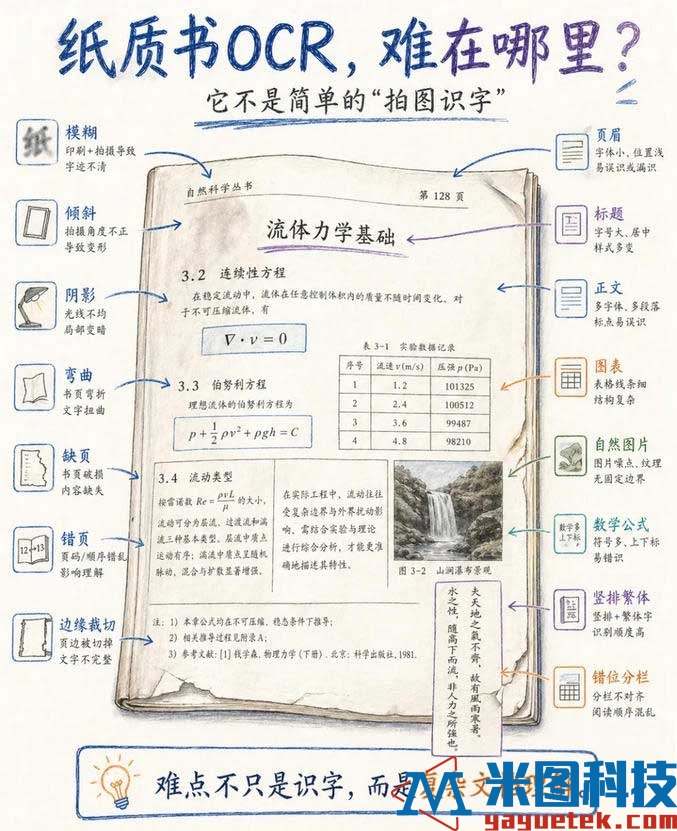 纸质书OCR，难在哪里？
它不是简单的“拍图识字”
纸
模糊
印刷+拍摄导致
字迹不清
倾斜
拍摄角度不正
导致变形
阴影
光线不均
局部变暗
弯曲
书页弯折
文字扭曲
缺页
书页破损
内容缺失
12↔13
错页
页码/顺序错乱
影响理解
边缘裁切
页边被切掉
文字不完整
自然科学丛书
第 128 页
流体力学基础
3.2 连续性方程
在稳定流动中，流体在任意控制体积内的质量不随时间变化。对
于不可压缩流体，有
∇·v=0
3.3 伯努利方程
理想流体的伯努利方程为
p+1/2ρv²+ρgh=C
表 3-1 实验数据记录
序号 流速v(m/s) 压强p(Pa)
1 1.2 101325
2 2.4 100512
3 3.6 99487
4 4.8 98210
3.4 流动类型
按雷诺数 Re=ρvL/μ 的大小，
流动可分为层流、过渡流和湍
流三种基本类型。层流中质点
运动有序；湍流中质点呈随机
脉动，混合与扩散显著增强。
在实际工程中，流动往往
受复杂边界与外界扰动影
响，需结合实验与理论
进行综合分析，才能更准
确地描述其特性。
图 3-2 山涧瀑布景观
注：1) 本章公式均在不可压缩、稳态条件下推导；
2) 相关推导过程见附录A；
3) 参考文献：[1] 钱学森. 物理力学（下册）. 北京：科学出版社，1981.
夫天地之氣不齊，故有風雨寒暑。
水之性，隨高下而流，非人力之所強也。
页眉
字体小、位置浅
易误识或漏识
标题
字号大、居中
样式多变
正文
多字体、多段落
标点易误识
图表
表格线条细
结构复杂
自然图片
图片噪点、纹理
无固定边界
数学多
上下标
数学公式
符号多、上下标
易错识
竖排繁体
竖排+繁体字
识别顺度高
错位分栏
分栏不对齐
阅读顺序混乱
难点不只是识字，而是复杂文
米图科技
yayuetek.com